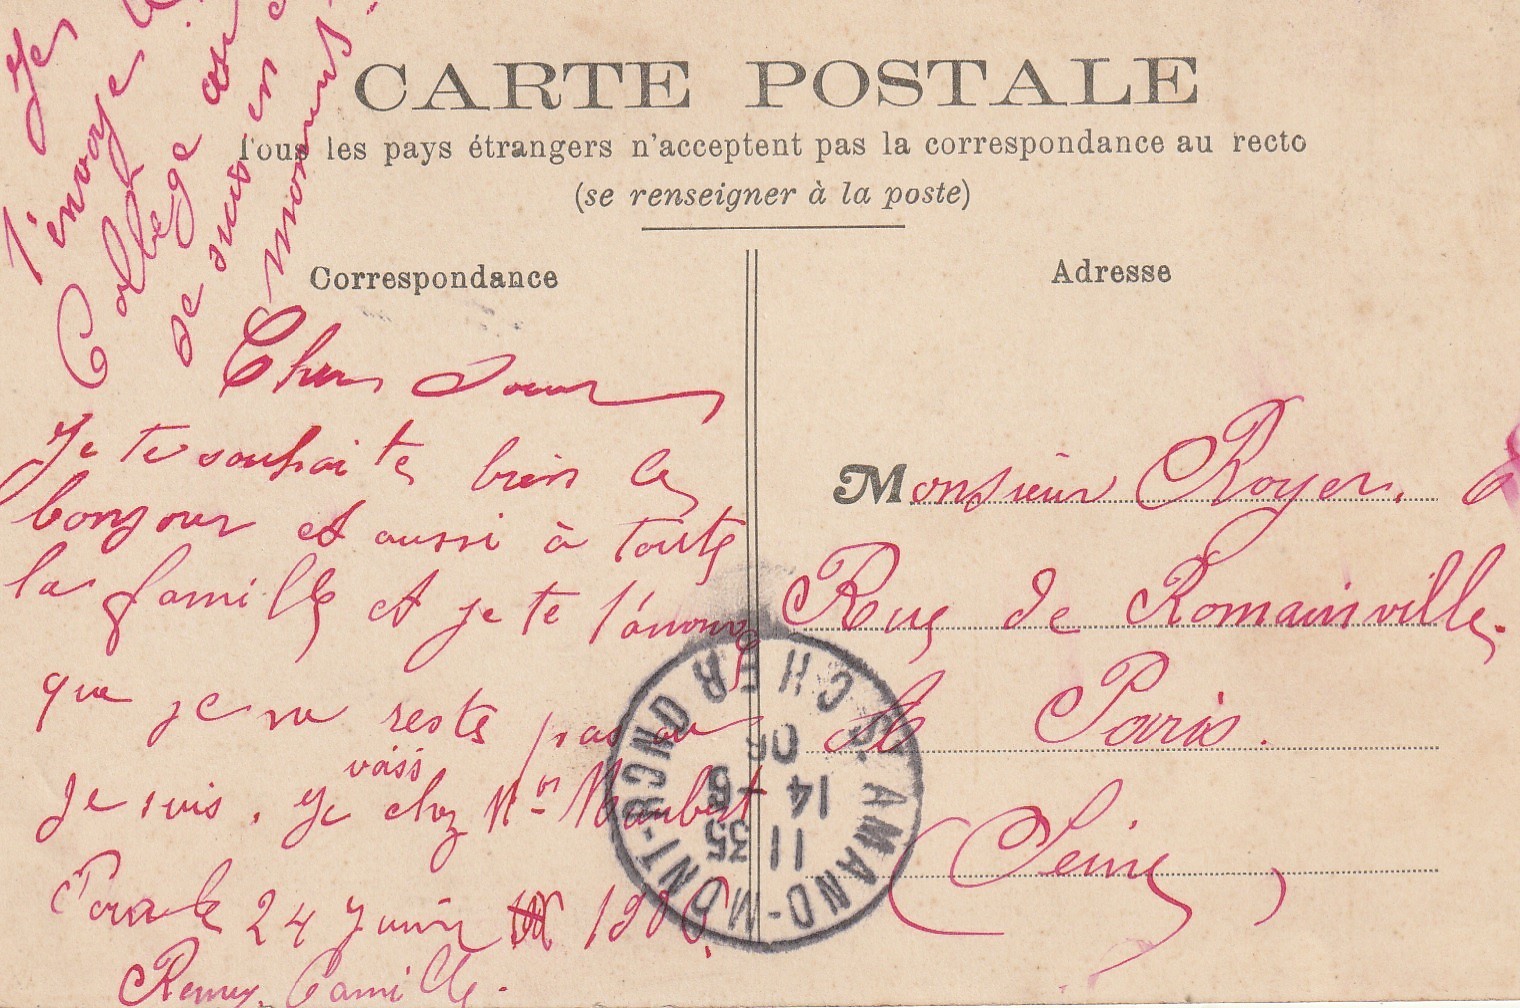 CARTE POSTALE
Tous les pays étrangers n'acceptent pas la correspondance au recto
(se renseigner à la poste)
Correspondance
Adresse
Je
t'envoye
Collège
je suis en
moment
Cher Soeur
Je te souhaite bien le
bonjour et aussi à toute
la famille et je te l'anonce
que je ne reste pas au
je suis. Je vais chez Mr Maubert
24 Juin 1906
Remy Camille.
Monsieur Royer. à
Rue de Romainville.
Paris.
(Seine)
ST AMAND-MONT-ROND CHER
11 35
14 -6
06